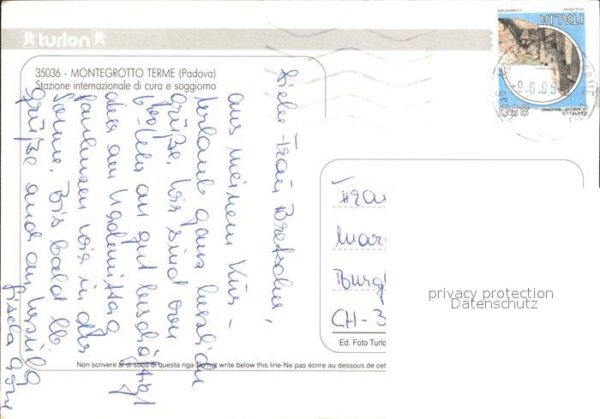 turlon
35036 - MONTEGROTTO TERME (Padova)
Stazione internazionale di cura e soggiorno
ITALIA
CASTELLO
Liebe Frau
aus meinem Kur-
urlaub ganz herzliche
Grüße. Wir sind von
gut beschäftigt
aber am Nachmittag
wir in der
Sonne. Bis bald lb
Grüße auch an
Gisela
Frau
Mar
Burg
CH-3
privacy protection
Datenschutz
Ed. Foto Turlo
Non scrivere al di sotto di questa riga-Do not write below this line-Ne pas écrire au dessous de cet